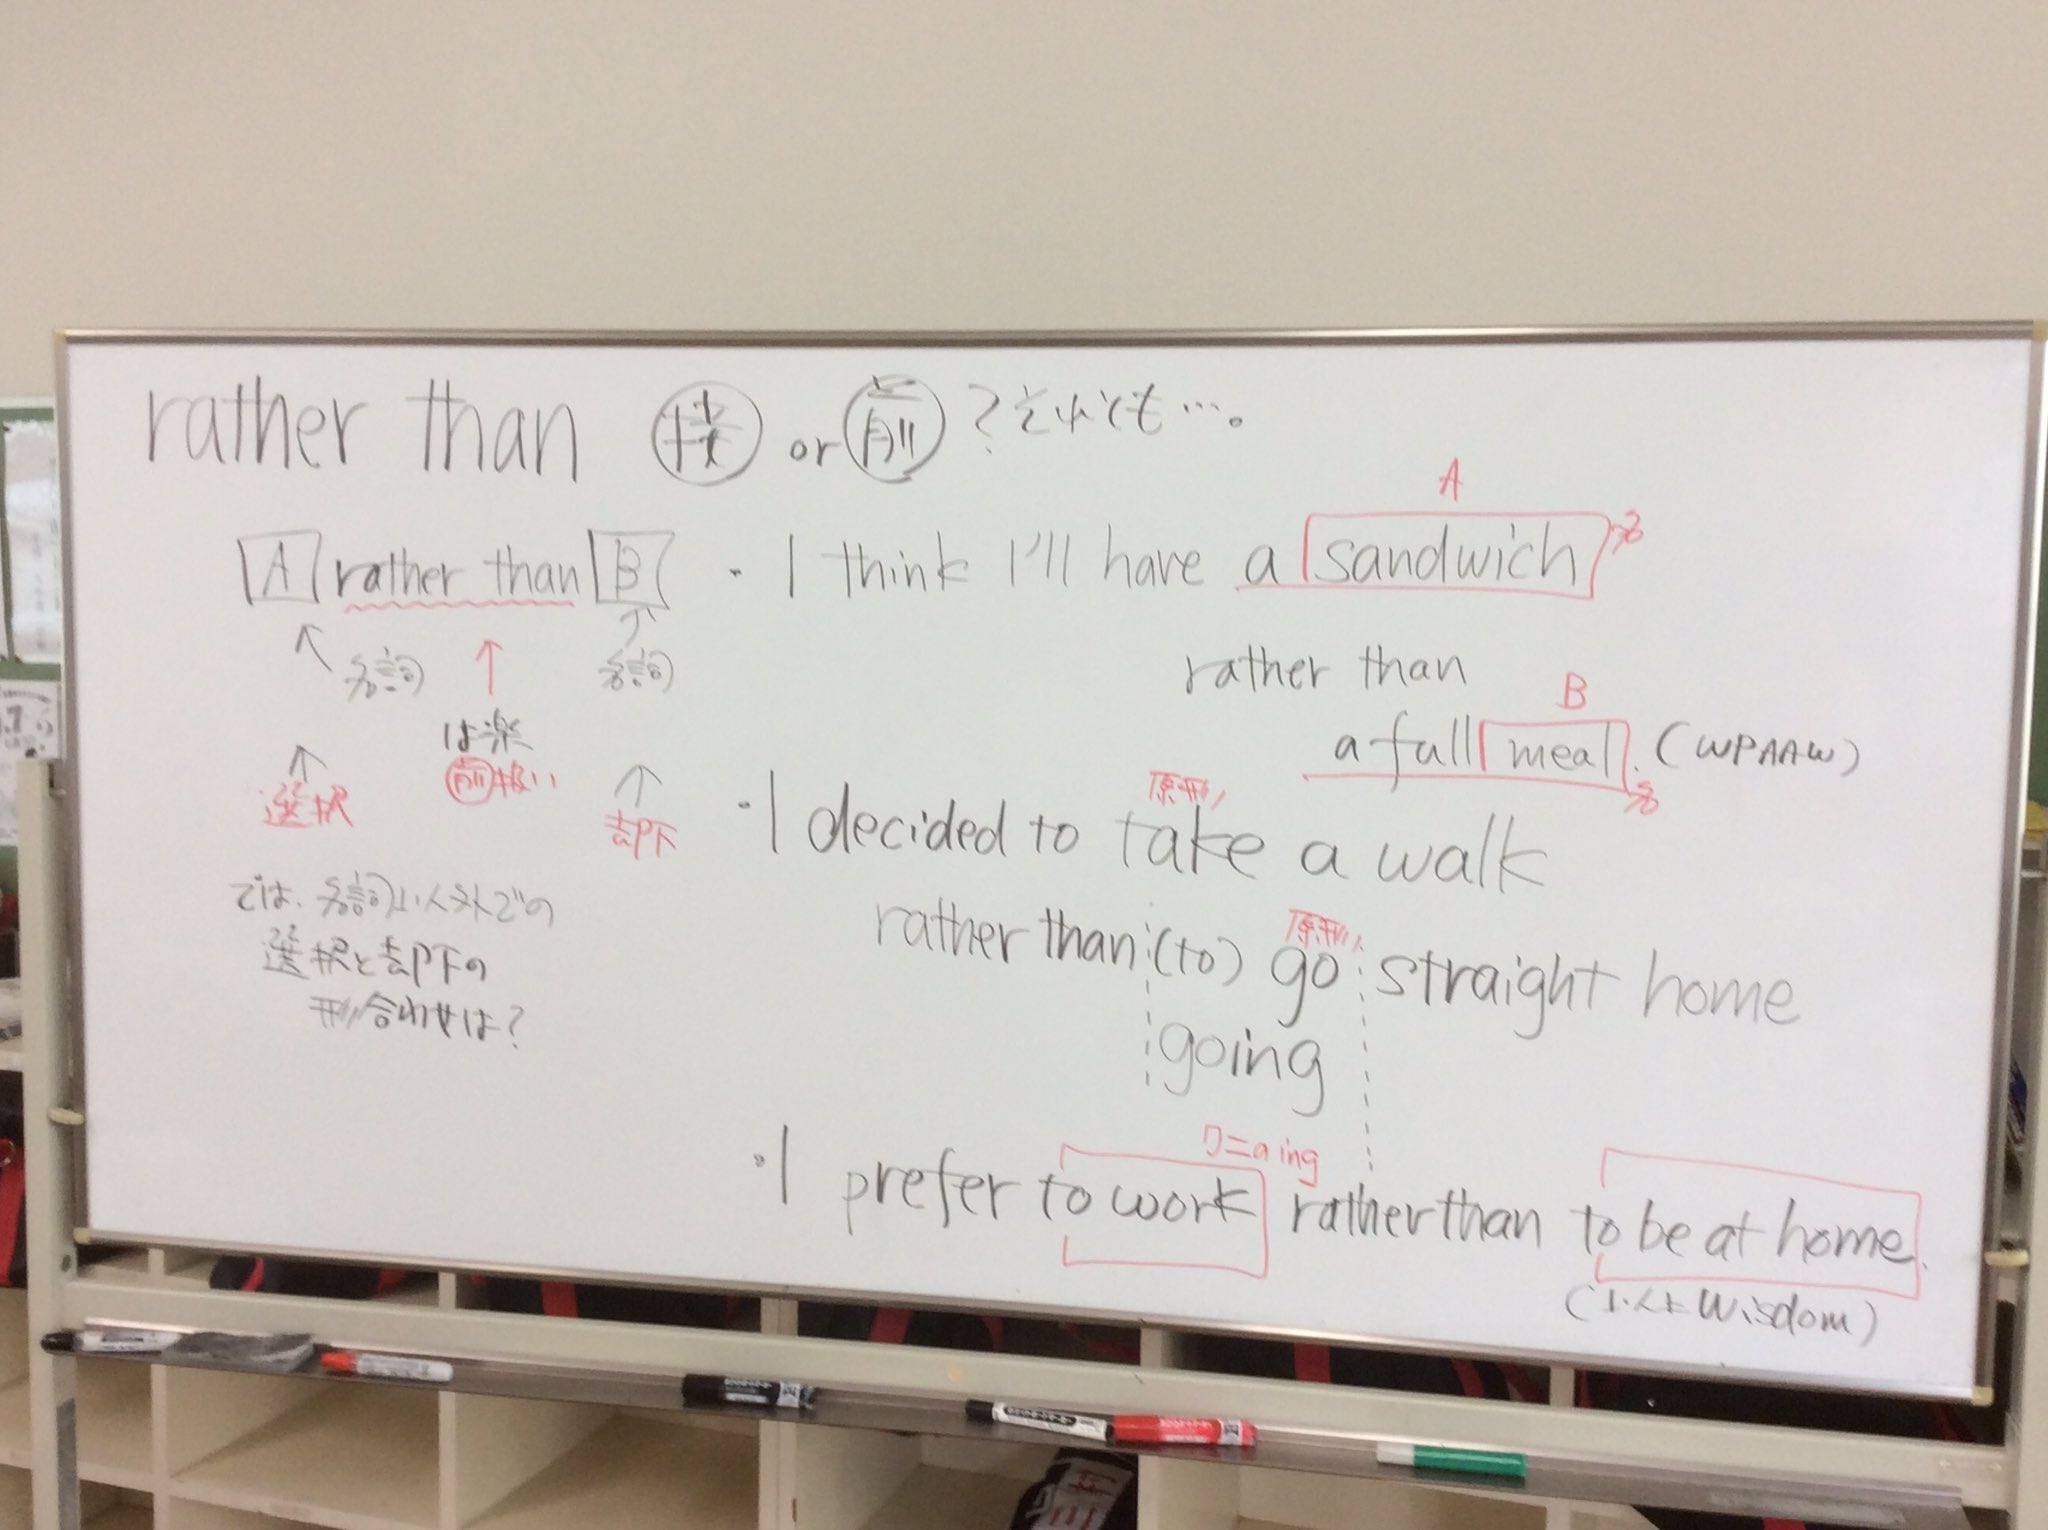 rather than 接 or 前 ? それとも…。
A rather than B
名詞 名詞
は楽
前扱い
選択 却下
では、名詞以外での
選択と却下の
形合わせは?
A
・I think I'll have a sandwich 名
rather than
B
a full meal. (WPAAW)
名
原形
・I decided to take a walk
原形
rather than (to) go straight home
going
ing
・I prefer to work rather than to be at home.
(以上 Wisdom)